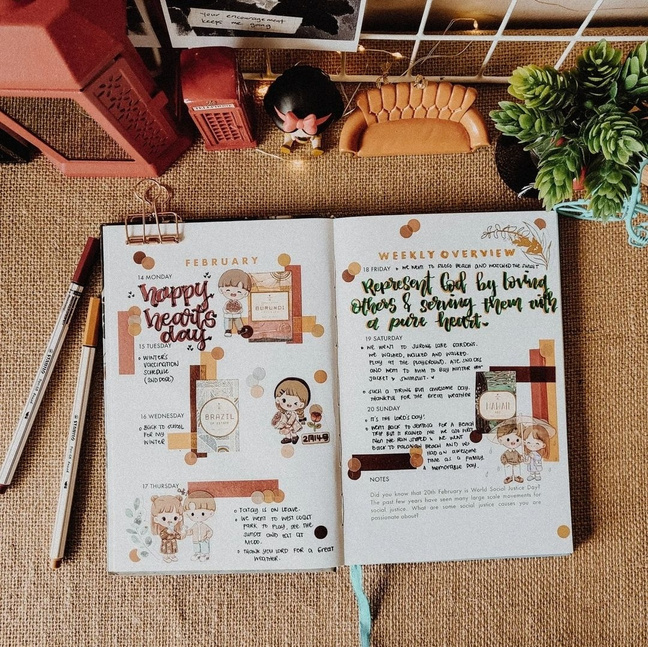 your encouragement
keeps me going
TELEPHONE
FEBRUARY
14 MONDAY
happy
hearts
day
BURUNDI
15 TUESDAY
• WINTER'S
VACCINATION
SCHEDULE
(2ND DOSE)
16 WEDNESDAY
• BACK TO SCHOOL
FOR MY
WINTER
BRAZIL
17 THURSDAY
• TODAY IS ON LEAVE.
• WE WENT TO WEST COAST
PARK TO PLAY, SEE THE
SUNSET AND EAT AT
MCDO.
• THANK YOU LORD FOR A GREAT
WEATHER.
WEEKLY OVERVIEW
18 FRIDAY • WE WENT TO BEACH AND WATCHED THE SUNSET
Represent God by loving
others & serving them with
a pure heart.
19 SATURDAY
• WE WENT TO JURONG LAKE GARDENS.
WE WALKED, WALKED AND WALKED.
PLAY AT THE PLAYGROUND, ATE SNACKS
AND WENT TO TO BUY WINTER
JACKET & SWIMSUIT.
• SUCH A TIRING BUT AWESOME DAY.
THANKFUL FOR THE GREAT WEATHER
20 SUNDAY
• IT'S THE LORD'S DAY!
• WENT BACK TO SENTOSA FOR A BEACH
TRIP BUT IT RAINED
THEN THE RAIN STOPPED & WE WENT
BACK TO BEACH AND WE
HAD AN AWESOME
TIME AS A FAMILY.
A MEMORABLE DAY.
HAWAII
NOTES
Did you know that 20th February is World Social Justice Day?
The past few years have seen many large scale movements for
social justice. What are some social justice causes you are
passionate about?
STABILO